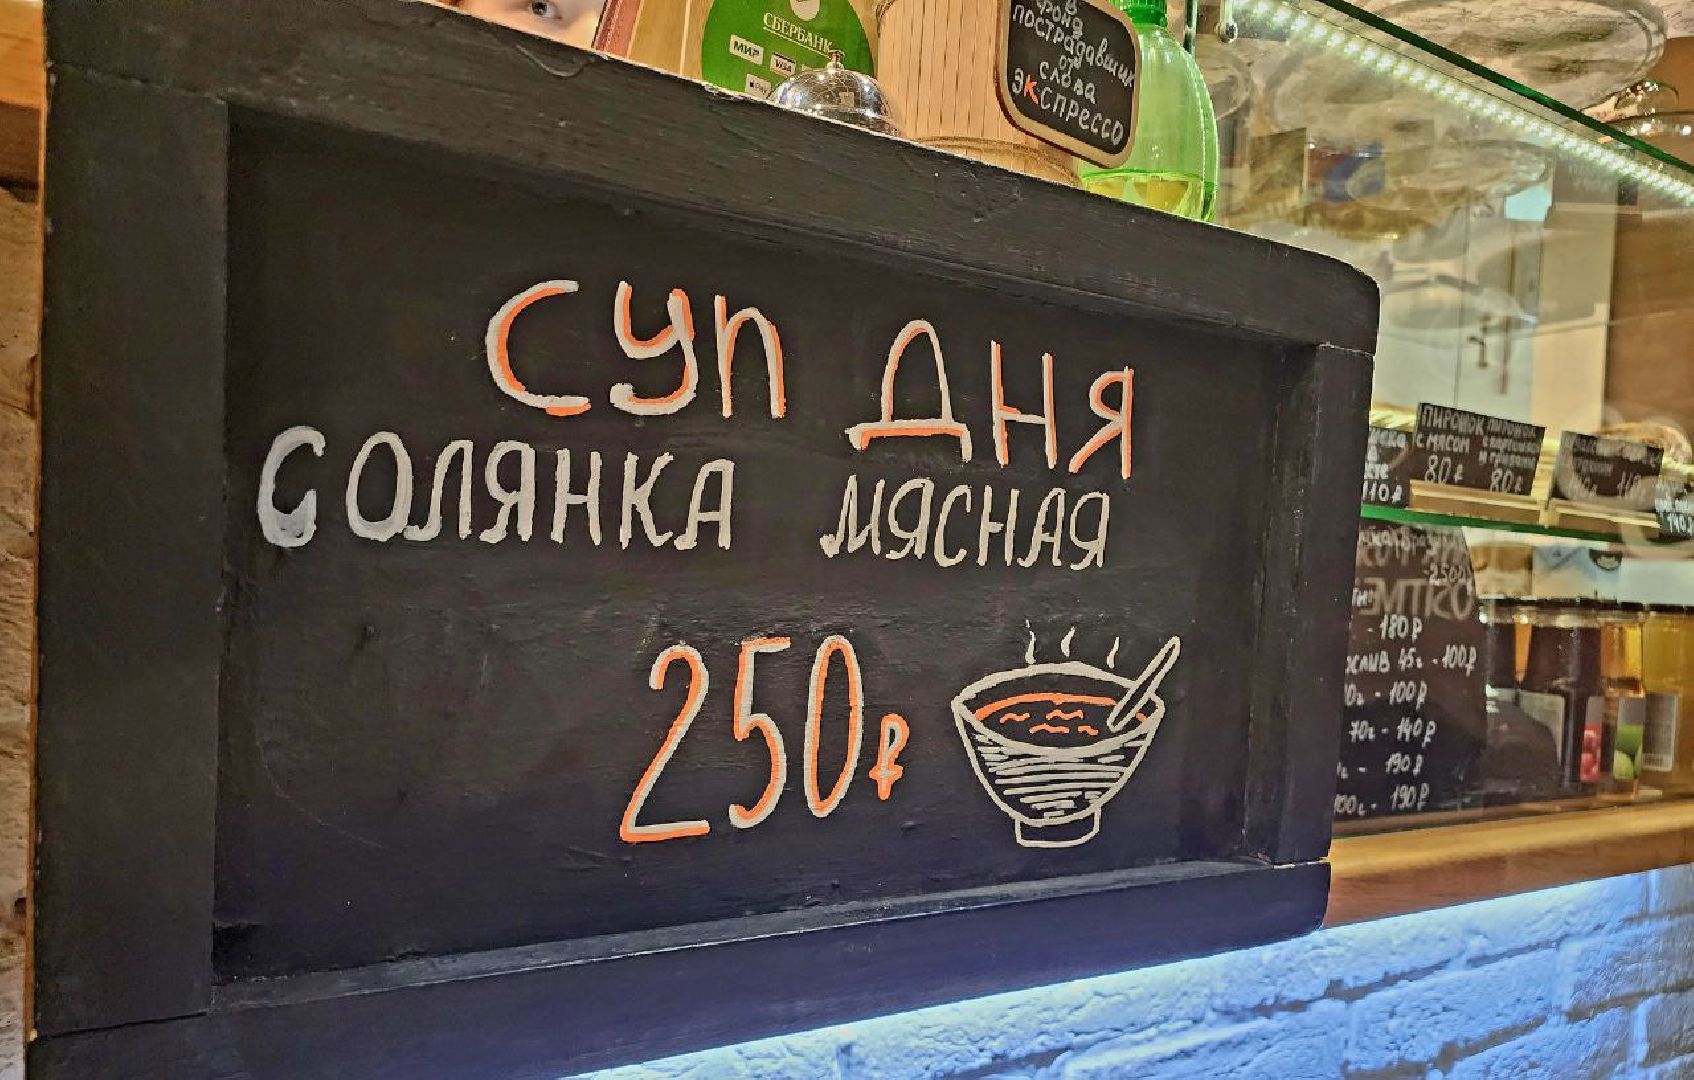 СБЕРБАНК
МИР
VISA
В
фонд
пострадавших
от
слова
экспрессо
Суп дня
Солянка мясная
250₽
ПИРОЖОК
С МЯСОМ
80₽
80₽
110₽
140₽
- 180₽
45г - 100₽
- 100₽
70г - 140₽
- 190₽
- 190₽